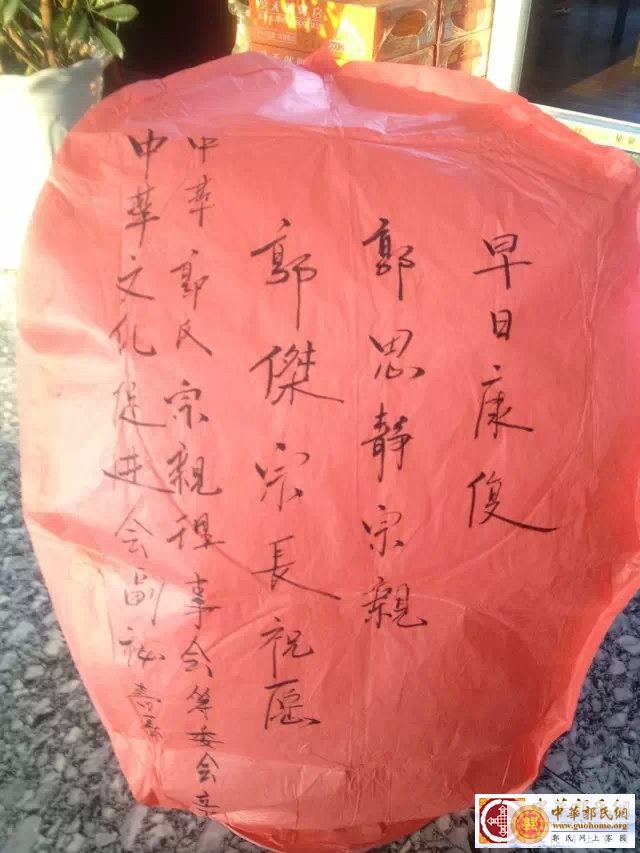 早日康復
郭思静宗親
郭傑宗長祝愿
中華郭氏宗親理事会筹委会
中華文化促进会副秘書長
中華郭氏網
www.guohome.org
郭氏網上家園